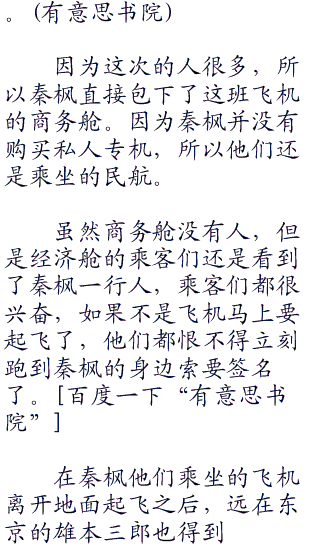 。(有意思书院)
因为这次的人很多，所
以秦枫直接包下了这班飞机
的商务舱。因为秦枫并没有
购买私人专机，所以他们还
是乘坐的民航。
虽然商务舱没有人，但
是经济舱的乘客们还是看到
了秦枫一行人，乘客们都很
兴奋，如果不是飞机马上要
起飞了，他们都恨不得立刻
跑到秦枫的身边索要签名
了。[百度一下“有意思书
院”]
在秦枫他们乘坐的飞机
离开地面起飞之后，远在东
京的雄本三郎也得到